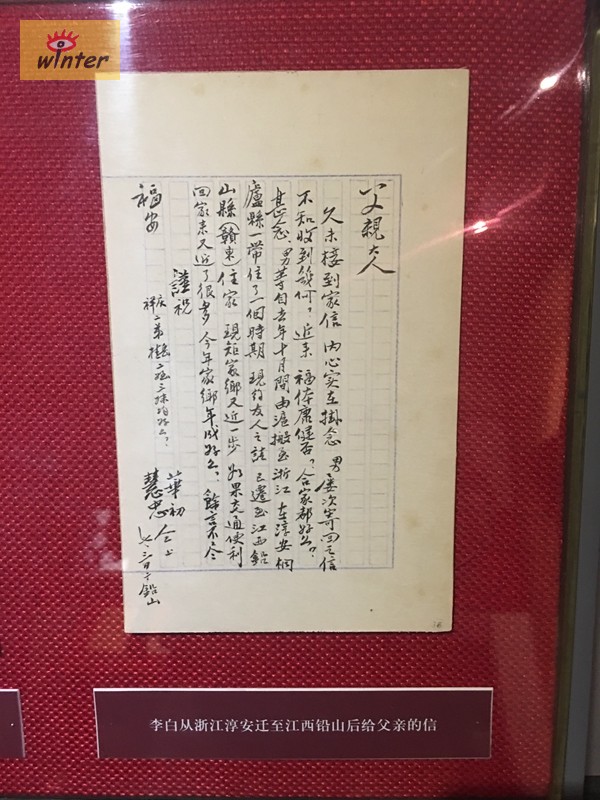 winter
父親大人
久未接到家信 內心实在掛念 男屡次寄回之信
不知收到幾何？近来 福体康健否？合家都好么？
甚念、男等自去年十月間由滬搬至浙江 在淳安桐
廬縣一帶住了一個時期 現 友人之請 已遷至江西鉛
山縣贛東住家 現距家鄉又近一步 如果交通便利
回家来又近了很多 今年家鄉年成好么、餘言不尽
謹祝
福安
二弟 三妹均好么？
華初
慧忠
日于鉛山
李白从浙江淳安迁至江西铅山后给父亲的信